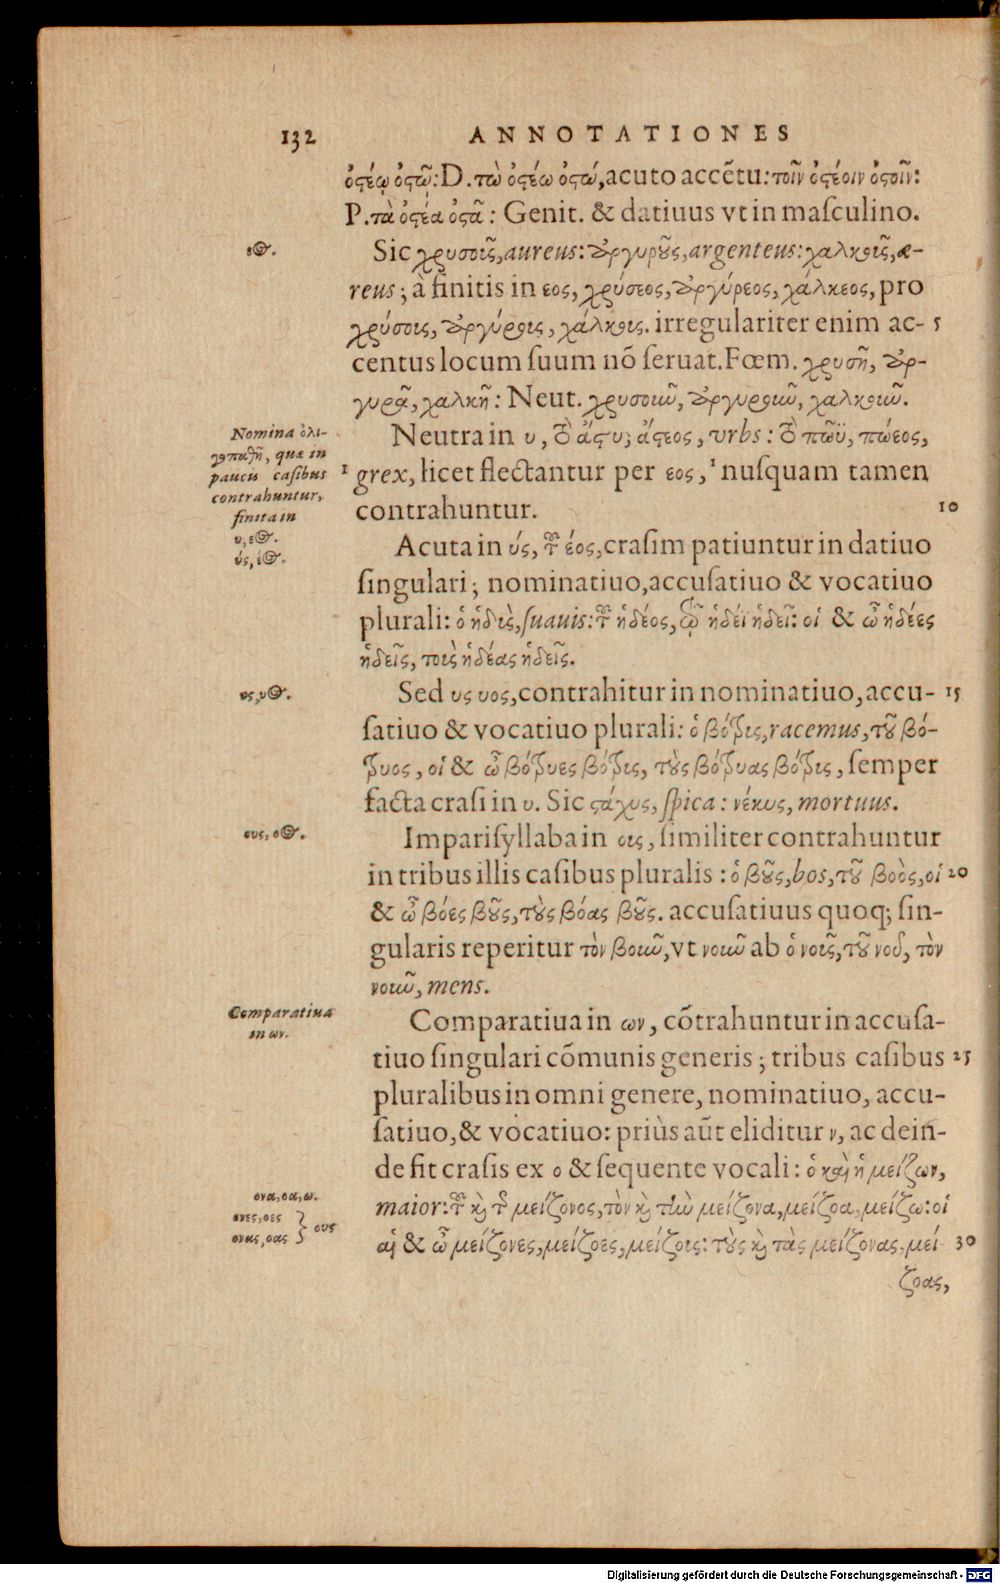 132 ANNOTATIONES
ὀςέῳ ὀςῷ: D. τὼ ὀςέω ὀςώ, acuto accẽtu: τοῖν ὀςέοιν ὀςοῖν:
P. τὰ ὀςέα ὀςᾶ: Genit. & datiuus vt in masculino.
εος.
Sic χρυσοῦς, aureus: ἀργυροῦς, argenteus: χαλκοῦς, æ-
reus; à finitis in εος, χρύσεος, ἀργύρεος, χάλκεος, pro
χρύσους, ἀργύρους, χάλκους. irregulariter enim ac- 5
centus locum suum nõ seruat. Fœm. χρυσῆ, ἀρ-
γυρᾶ, χαλκῆ: Neut. χρυσοῦν, ἀργυροῦν, χαλκοῦν.
Nomina ὀλι-
γοπαθῆ, quæ in
paucis casibus
contrahuntur,
finita in
υ, εος.
ύς, έος.
Neutra in υ, τὸ ἄςυ, ἄςεος, vrbs: τὸ πῶϋ, πώεος,
1 grex, licet flectantur per εος, 1 nusquam tamen
contrahuntur. 10
Acuta in ύς, τοῦ έος, crasim patiuntur in datiuo
singulari; nominatiuo, accusatiuo & vocatiuo
plurali: ὁ ἡδὺς, suauis: τοῦ ἡδέος, τῷ ἡδέϊ ἡδεῖ: οἱ & ὦ ἡδέες
ἡδεῖς, τοὺς ἡδέας ἡδεῖς.
υς, υος.
Sed υς υος, contrahitur in nominatiuo, accu- 15
satiuo & vocatiuo plurali: ὁ βότρυς, racemus, τοῦ βό-
τρυος, οἱ & ὦ βότρυες βότρυς, τοὺς βότρυας βότρυς, semper
facta crasi in υ. Sic ςάχυς, spica: νέκυς, mortuus.
ους, οος.
Imparisyllaba in ους, similiter contrahuntur
in tribus illis casibus pluralis: ὁ βοῦς, bos, τοῦ βοὸς, οἱ 20
& ὦ βόες βοῦς, τοὺς βόας βοῦς. accusatiuus quoq; sin-
gularis reperitur τὸν βοῦν, vt νοῦν ab ὁ νοῦς, τοῦ νοῦ, τὸν
νοῦν, mens.
Comparatiua
in ων.
Comparatiua in ων, cõtrahuntur in accusa-
tiuo singulari cõmunis generis; tribus casibus 25
pluralibus in omni genere, nominatiuo, accu-
satiuo, & vocatiuo: priùs aũt eliditur ν, ac dein-
de fit crasis ex ο & sequente vocali: ὁ καὶ ἡ μείζων,
ονα, οα, ω.
ονες, οες
ονας, οας } ους
maior: τοῦ καὶ τῆς μείζονος, τὸν καὶ τὴν μείζονα, μείζοα, μείζω: οἱ
αἱ & ὦ μείζονες, μείζοες, μείζους: τοὺς καὶ τὰς μείζονας, μεί- 30
ζοας,
Digitalisierung gefördert durch die Deutsche Forschungsgemeinschaft - DFG